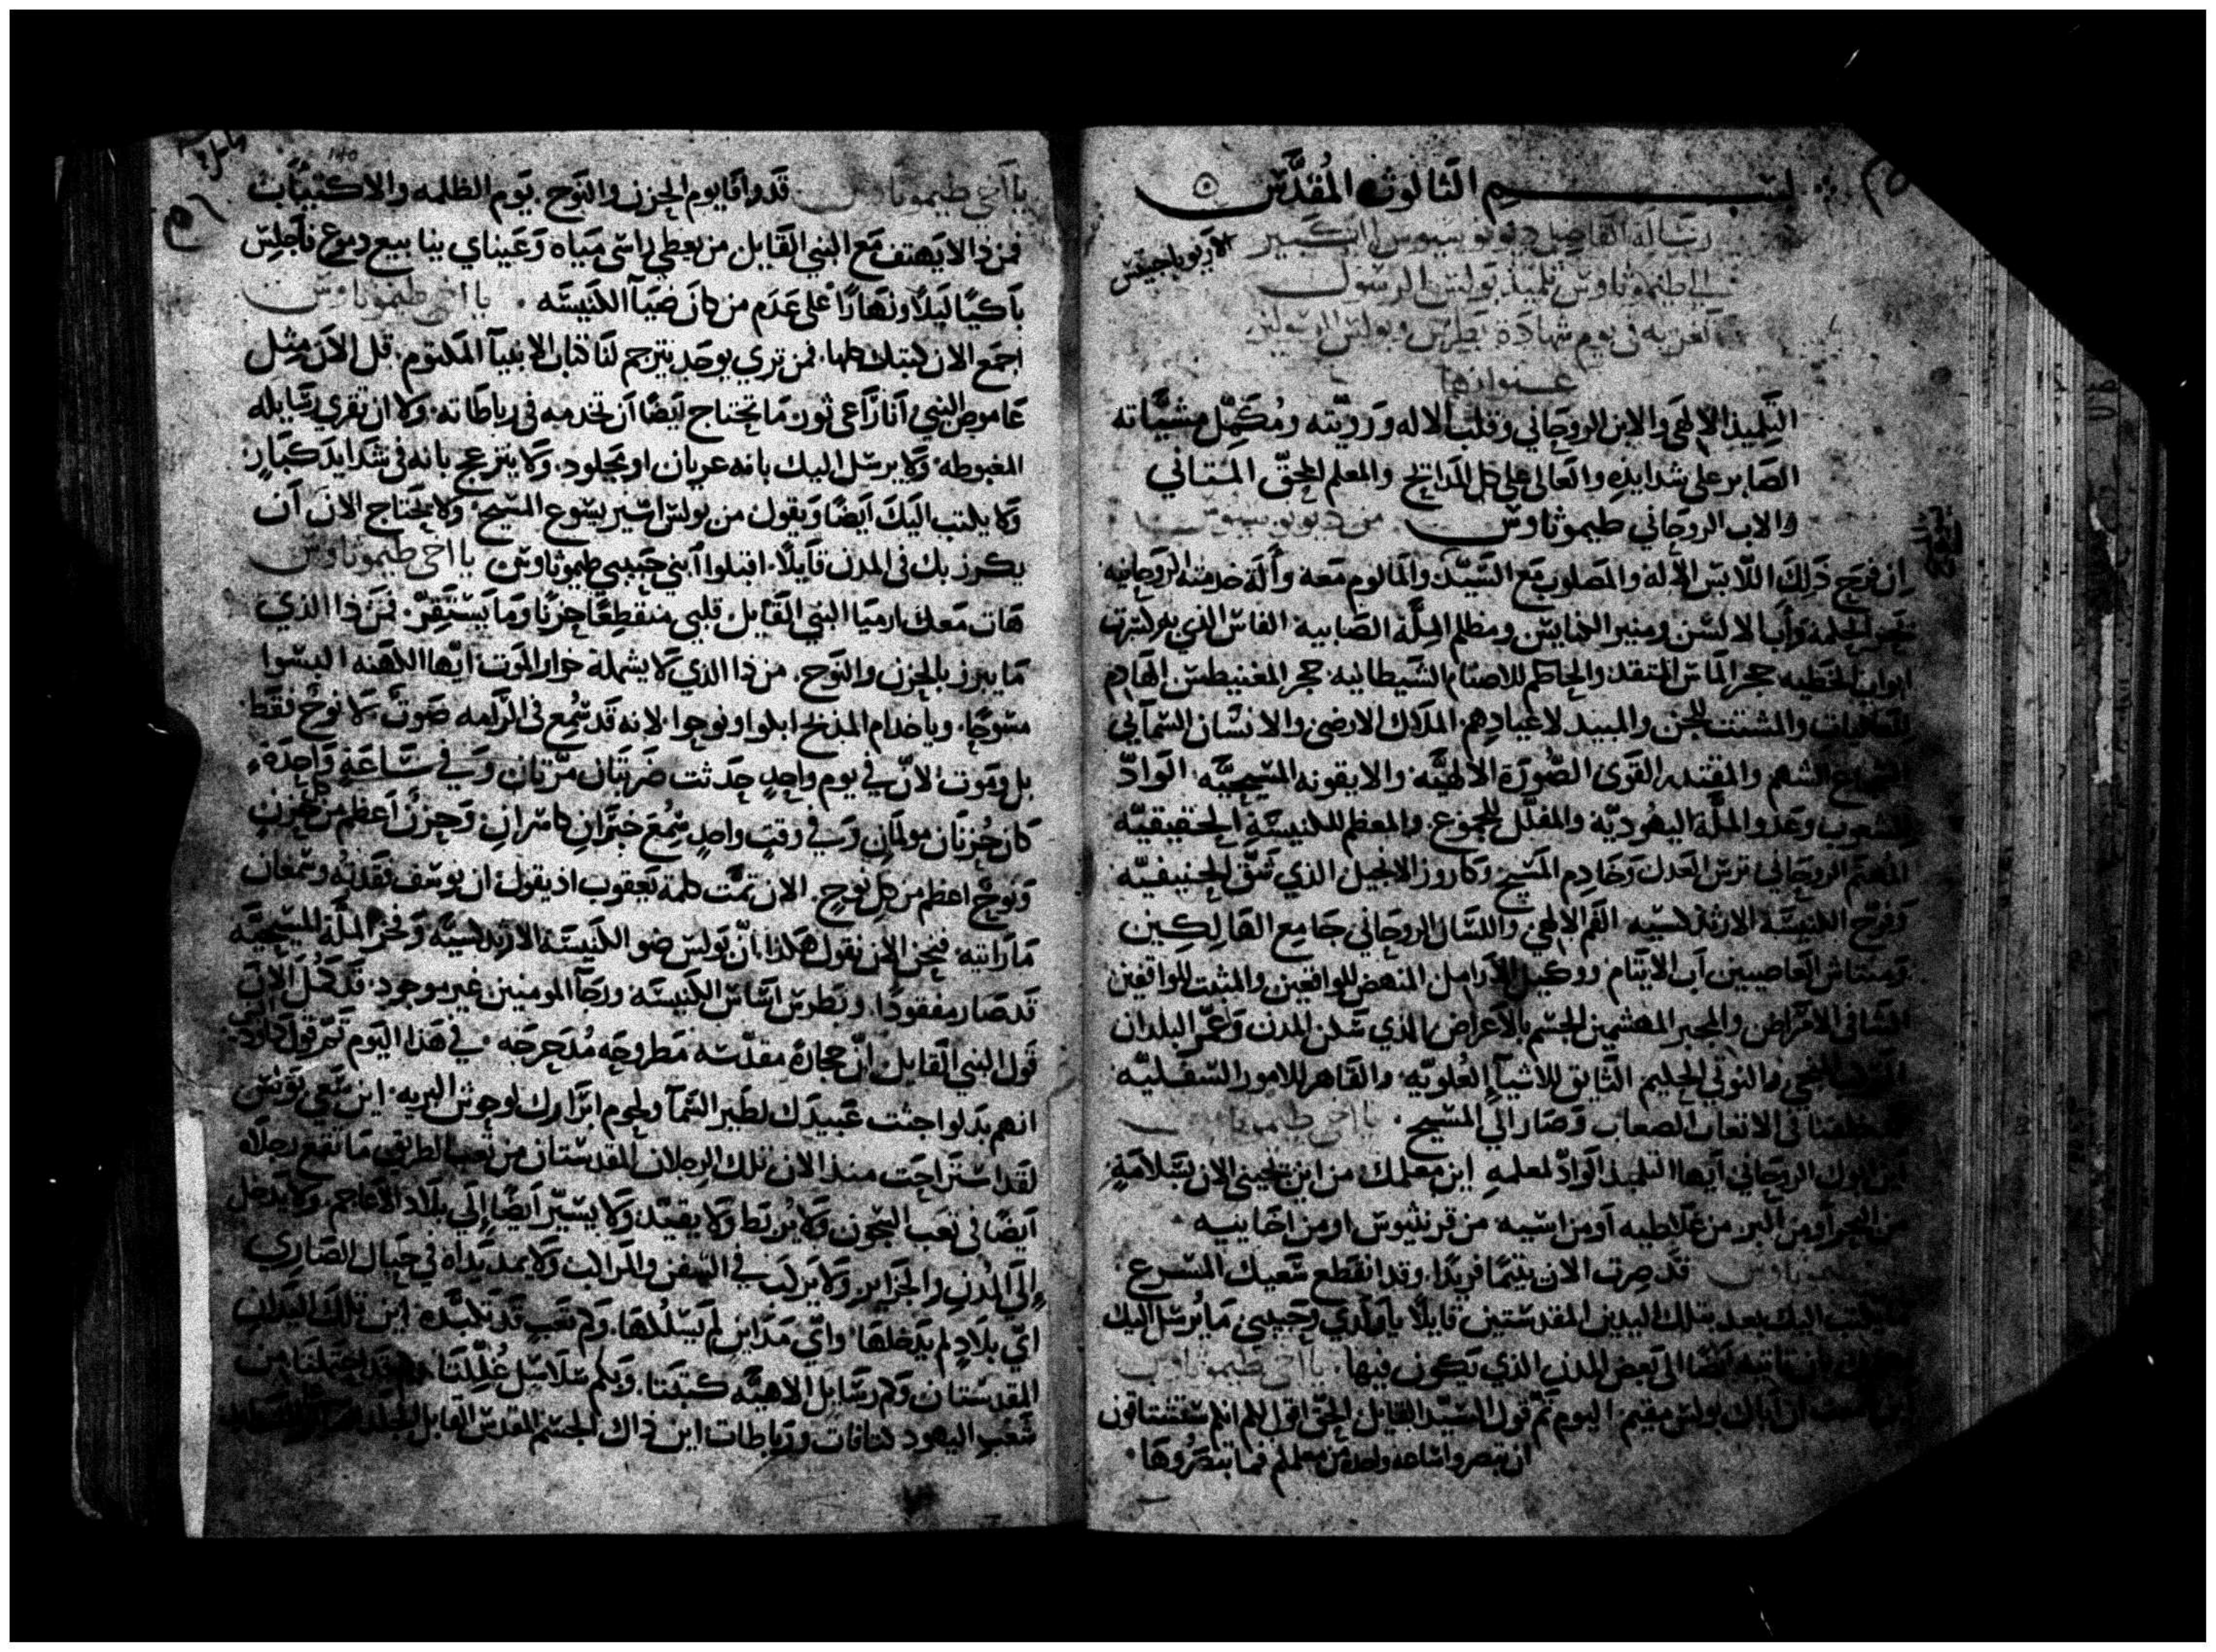 بسم الثالوث المقدس
رسالة الفاضل ديونوسيوس الكبير
الاريوباجيتس
الي طيموثاوس تلميذ بولس الرسول
تعزيه في يوم شهادة بطرس وبولس الرسولين
عنوانها
التلميذ الالهي والابن الروحاني وقلب الاله ورويته ومكمل مشيّاته
الصابر علي شدايده والعالي علي كل المدايح والمعلم المحق المتاني
والاب الروحاني طيموثاوس من ديونوسيوس
ان فرج ذلك اللابس الاله والمصلوب مع السيد والمالوم معه وأله خدمته الروحانيه
الحكمه وأبا الالسن ومنير الكنايس ومظلم الملّة الصابية الفاس الذي
ابواب الخطيه حجر الماس المتقد والحاطم للاصنام الشيطانيه حجر المغنيطس الهادم
والمشتت للجن والمبيد لاعيادهم الملاك الارضي والانسان السماني
الشجاع الشهم والمقتدر القوى الصورة الالهيّة والايقونه المسيحيّه الوادّ
للشعوب وعدو الملّة اليهوديّة والمفلّل للجموع والمعظم للكنيسة الحقيقيّه
المهتم الروحاني ترس العدل وخادم المسيح وكاروز الانجيل الذي
وفرّح الكنيسة الارثدكسيه الفم الالهي واللسان الروحاني جامع الهالكين
العاصيين اب الايتام ووكيل الارامل المنهض للواقعين والمثبت للواقفين
الشافي الامراض والمجبر المهشمين الجسم بالاعراض الذي سكن المدن وعمّر البلدان
المركب المنجي والنوتي الحليم التايق للاشيآء العُلويّه والقاهر للامور السفليّه
في الاتعاب الصعاب وصار الي المسيح يا اخي طيموثاوس
اين ابوك الروحاني ايها التلميذ الوادّ لمعلمه اين معلمك من اين تجيني الان بسلامةٍ
من البحر أو من البر من غلاطيه أو من اسيه من قرنثيوس او من اخاييه
طيموثاوس قد صرت الان يتيمًا فريدًا وقد انقطع سعيك المسرع
يكتب اليك بعد بتلك اليدين المقدستين قايلا يا ولدي وحبيبي ما يُرسل اليك
بان تاتيه ايضًا الي بعض المدن الذي يكون فيها يا اخي طيموثاوس
ان اباك بولس مقيم اليوم تمّ قول السيّد القايل الحق اقول لكم انكم ستشتاقون
ان تبصروا ساعه واحدة من معلمكم فما تبصروها
يا اخي طيموثاوس قد وافا يوم الحزن والنوح يوم الظلمه والاكتيّاب
فمن ذا لا يهتف مع النبي القايل من يعطي راسي مياه وعيناي ينابيع دموع فأجلس
باكيًا ليلا ونهارًا علي عدم من كان ضيآ الكنيسه يا اخي طيموثاوس
اجمع الان كتبك كلها فمن تري يوجد يترجم لنا كتاب الانبيآ المكتوم قل الان مثل
عاموص النبي انا راعي ثون ما تحتاج ايضًا ان تخدمه في رباطاته ولا ان تقري رسايله
المغبوطه ولا يرسل اليك بانه عريان او مجلود ولا ينزعج بانه في شدايد كبار
ولا يكتب اليك ايضًا ويقول من بولس اسير يسوع المسيح ولا يحتاج الان ان
يكرز بك في المدن قايلا اقبلوا ابني حبيبي طيموثاوس يا اخي طيموثاوس
هات معك ارميا النبي القايل قلبي منقطعًا حزنا وما يستقر فمن ذا الذي
ما يبرز بالحزن والنوح من ذا الذي لا يشمله خوار الموت ايها الكهنه البسوا
مسوحًا ويا خدام المذبح ابكوا ونوحوا لانه قد سُمع في الرامه صوت لا نوح فقط
بل وموت لان في يوم واحد حدثت ضربتان مرّتان وفي ساعة واحدة
كان حُزنان مولمان وفي وقتٍ واحدٍ سُمع خبران كاسران وحزن اعظم من كل حزن
ونوح اعظم من كل نوح الان تمّت كلمة يعقوب اذ يقول ان يوسف فقدته وسمعان
ما راتيه فنحن الان نقول هكذا ان بولس ضو الكنيسة الارثدكسيّة وفخر الملّة المسيحيّة
قد صار مفقودًا وبطرس اساس الكنيسه ورجآ المومنين غير موجود قد كمل الان
قول النبي القايل ان حجارة مقدّسه مطروحه مُدحرجه في هذا اليوم تم قول داوود النبي
انهم بدلوا جثث عبيدك لطير السمآ ولحوم ابرارك لوحوش البريه اين سعي بولس
لقد استراحت منذ الان تلك الرجلان المقدستان من تعب الطريق ما تقع رجلاه
ايضًا في تعب السجون ولا يُربط ولا يقيّد ولا يسيّر ايضًا إلي بلاد الاعاجم ولا يدخل
إلي المدن والجزاير ولا يركب في السفن والمراكب ولا يمد يداه في حبال الصّاري
ايّ بلاد لم يدخلها وايّ مداين لم يسلكها وكم تعب قد تكبّده اين تلك اليدان
المقدستان وكم رسايل الاهيّه كتبتا وبكم سلاسل غُلِّلتا قد احتملتا من
شعب اليهود كتافات ورباطات اين ذاك الجسم المقدس القابل الجلد